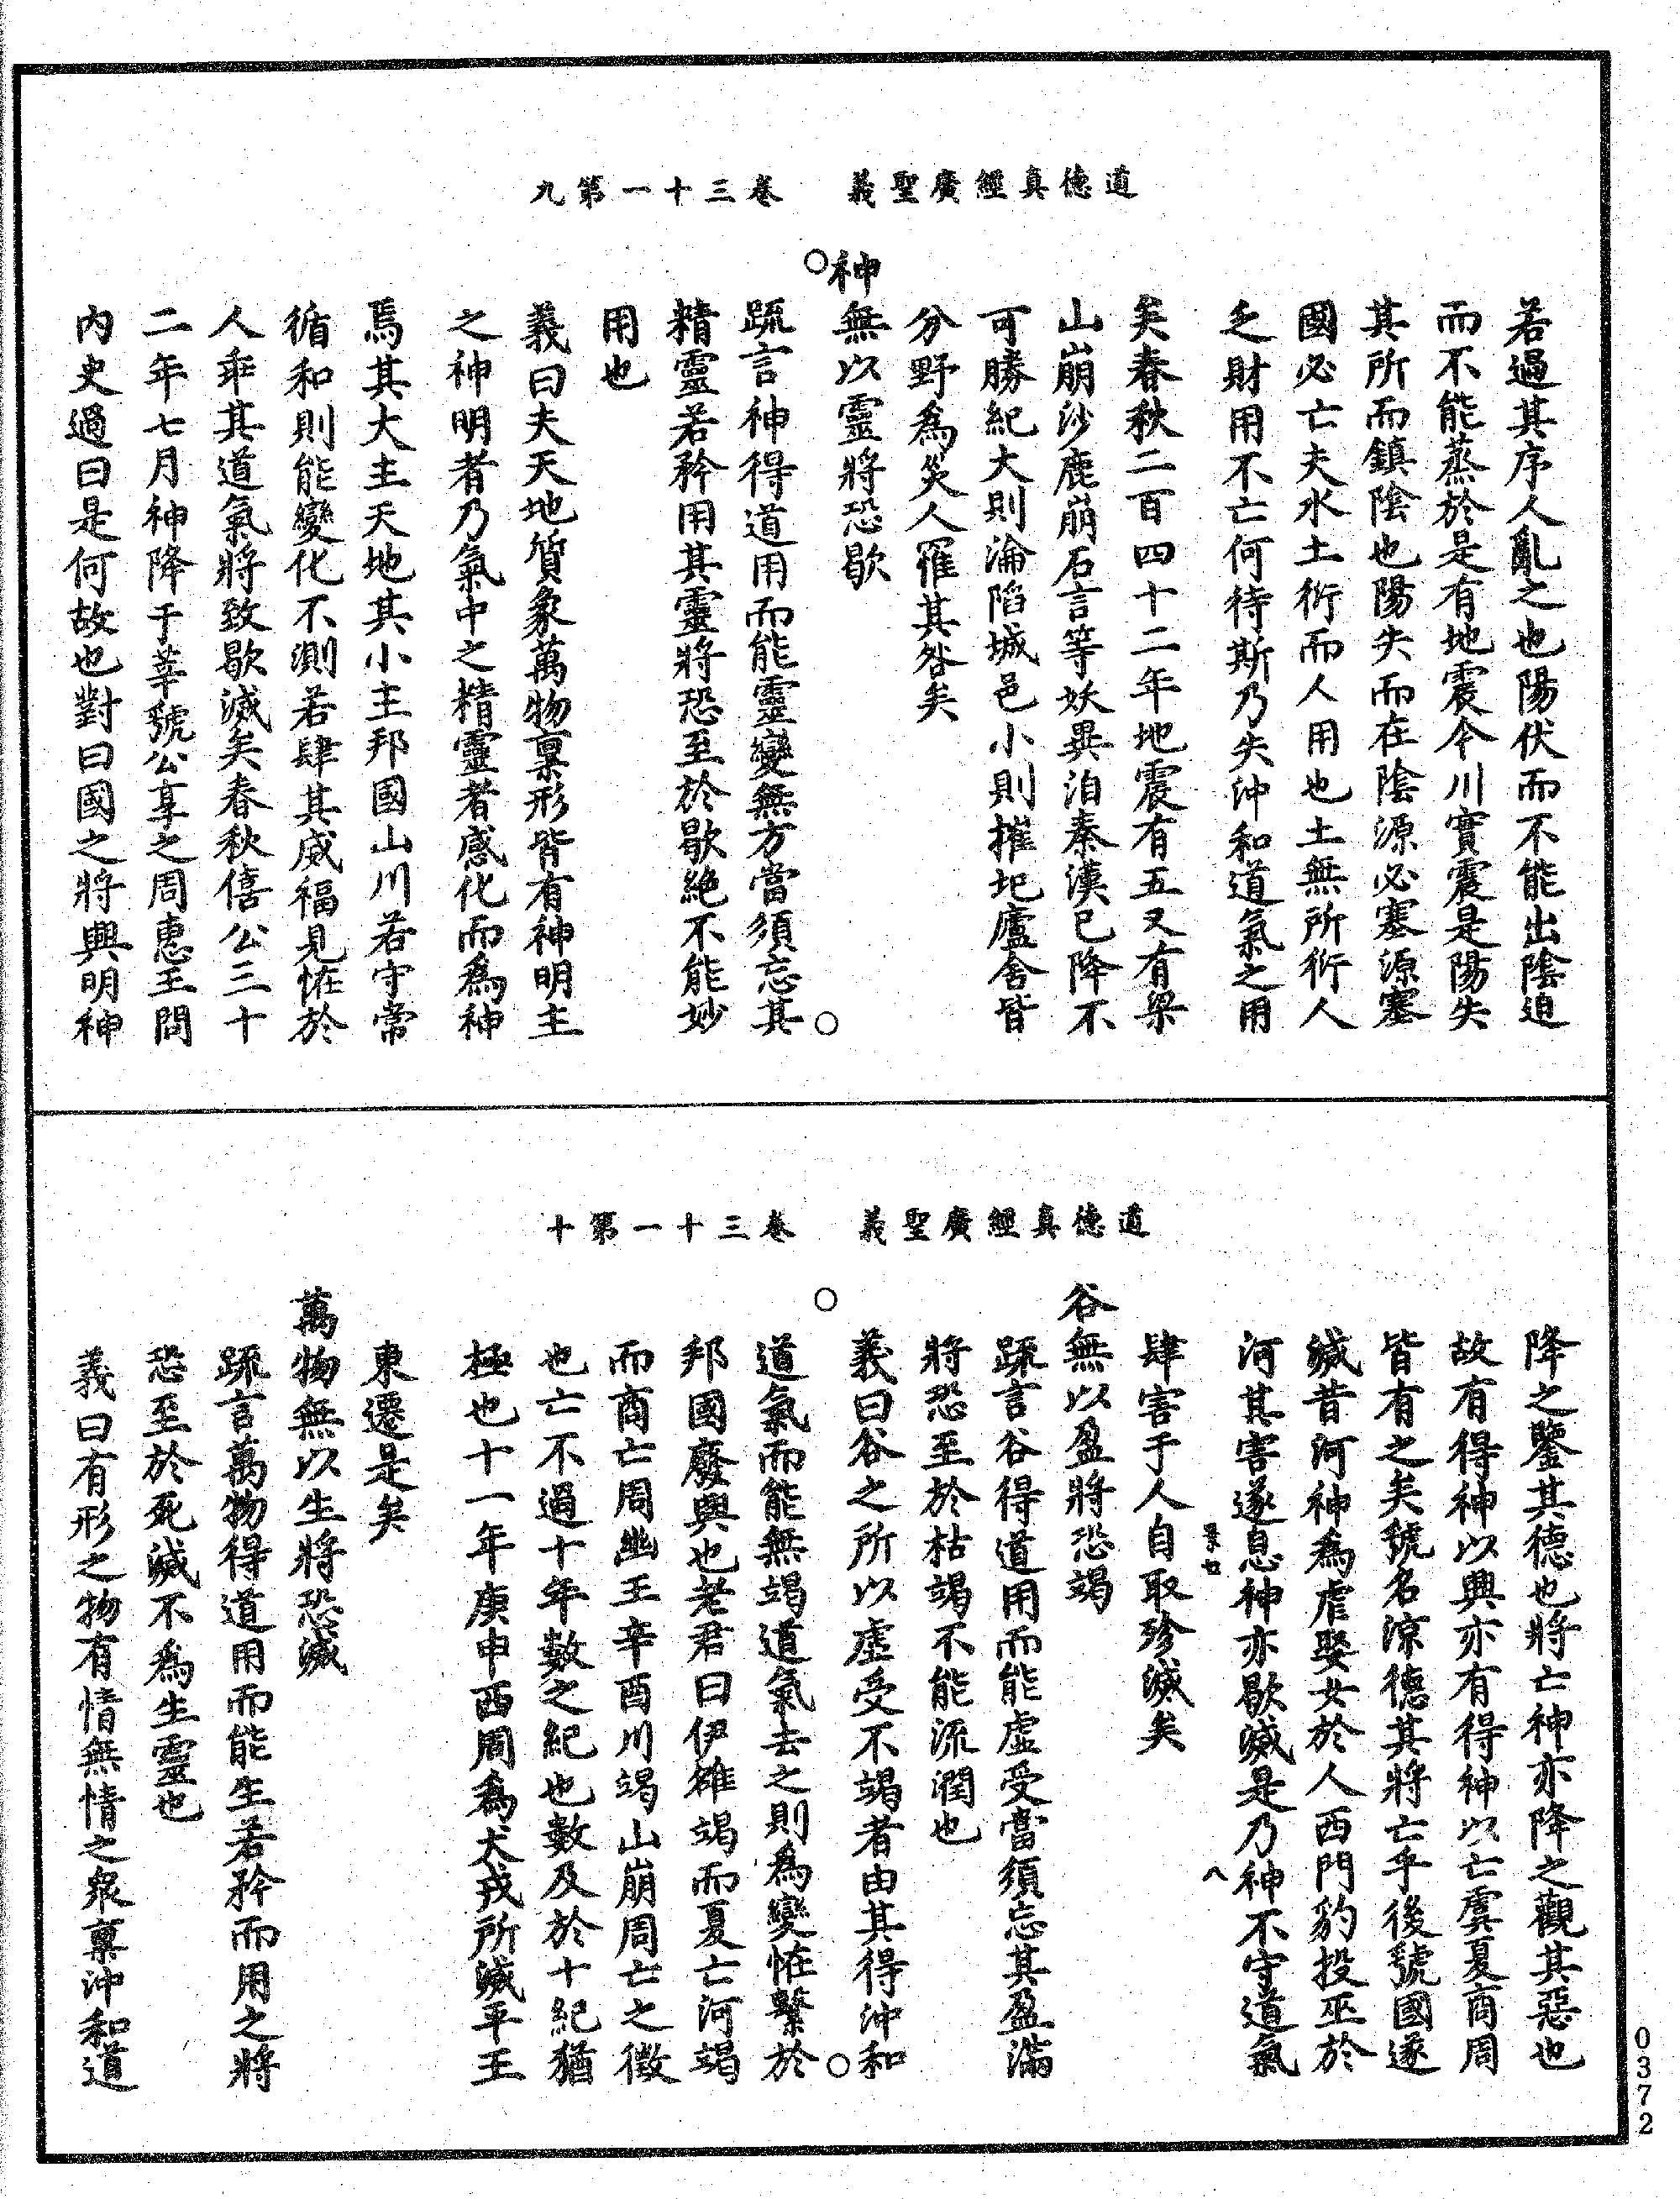 道德真經廣聖義　卷三十一第九
若過其序人亂之也陽伏而不能出陰迫
而不能蒸於是有地震今川實震是陽失
其所而鎮陰也陽失而在陰源必塞源塞
國必亡夫水土衍而人用也土無所衍人
乏財用不亡何待斯乃失沖和道氣之用
矣春秋二百四十二年地震有五又有梁
山崩沙鹿崩石言等妖異洎秦漢已降不
可勝紀大則淪陷城邑小則摧圯廬舍皆
分野為災人罹其咎矣
神無以靈將恐歇
疏言神得道用而能靈變無方當須忘其
精靈若矜用其靈將恐至於歇絕不能妙
用也
義曰夫天地質象萬物稟形皆有神明主
之神明者乃氣中之精靈者感化而為神
焉其大主天地其小主邦國山川若守常
循和則能變化不測若肆其威福見恠於
人乖其道氣將致歇滅矣春秋僖公三十
二年七月神降于莘虢公享之周惠王問
內史過曰是何故也對曰國之將興明神
道德真經廣聖義　卷三十一第十
降之鑒其德也將亡神亦降之觀其惡也
故有得神以興亦有得神以亡虞夏商周
皆有之矣虢名涼德其將亡乎後虢國遂
滅昔河神為虐娶女於人西門豹投巫於
河其害遂息神亦歇滅是乃神不守道氣
肆害于人自取殄滅矣
谷無以盈將恐竭
疏言谷得道用而能虛受當須忘其盈滿
將恐至於枯竭不能流潤也
義曰谷之所以虛受不竭者由其得沖和
道氣而能無竭道氣去之則為變恠繫於
邦國廢興也老君曰伊雒竭而夏亡河竭
而商亡周幽王辛酉川竭山崩周亡之徵
也亡不過十年數之紀也數及於十紀猶
極也十一年庚申西周為犬戎所滅平王
東遷是矣
萬物無以生將恐滅
疏言萬物得道用而能生若矜而用之將
恐至於死滅不為生靈也
義曰有形之物有情無情之衆稟沖和道
0372